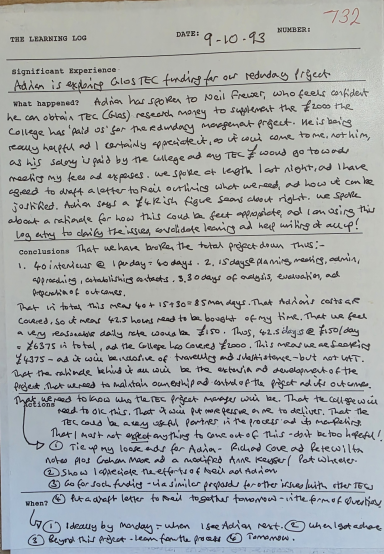 732
THE LEARNING LOG DATE: 9-10-93 NUMBER:
Significant Experience
Adrian is exploring Glos TEC funding for our redundancy project
What happened? Adrian has spoken to Neil, who feels confident
he can obtain TEC (Glos) research money to supplement the £2000 the
College has 'paid us' for the redundancy management project. He is being
really helpful and I certainly appreciate it, as it will come to me, not him,
as his salary is paid by the College and any TEC £ would go towards
meeting my fees and expenses. We spoke at length last night, and I have
agreed to draft a letter to Neil outlining what we need, and how it can be
justified. Adrian says a £4K ish figure seems about right. We spoke
about a rationale for how this could be appropriate, and I am using this
log entry to clarify the issues, consolidate learning and help writing it all up!
Conclusions That we have broken the total project down thus:-
1. 40 interviews @ 1 per day = 40 days. 2. 15 days planning, meeting, admin,
approaching, establishing contacts. 3. 30 days of analysis, evaluation, and
preparation of outcomes.
That in total this means 40 + 15 + 30 = 85 man days. That Adrian's costs are
covered, so it means 42.5 hours need to be bought of my time. That we feel
a very reasonable daily rate would be £150. Thus, 42.5 days @ £150/day
= £6375 in total, and the College has covered £2000. This means we are seeking
£4375 - and it will be inclusive of travelling and subsistence - but not VAT.
That the rationale behind it all will be the extension and development of the
project. That we need to maintain ownership and control of the project and its outcomes.
That we need to know who the TEC project manager will be. That the College will
Actions need to OK this. That it will put more pressure on me to deliver. That the
TEC could be a very useful partner in the process and its marketing.
That I must not expect anything to come out of this - don't be too hopeful!
① Tie up my loose ends for Adrian - Richard Cove and Pete
notes plus Graham and a modified Anne / Pat Wheeler.
② Show I appreciate the efforts of Neil and Adrian
③ Go for such funding - via similar proposals for other issues with other TECs
④ Put a draft letter to Neil together tomorrow - in the form of questions
When?
① Ideally by Monday = when I see Adrian next. ② When I get a chance
③ Beyond this project - learn from the process ④ Tomorrow.